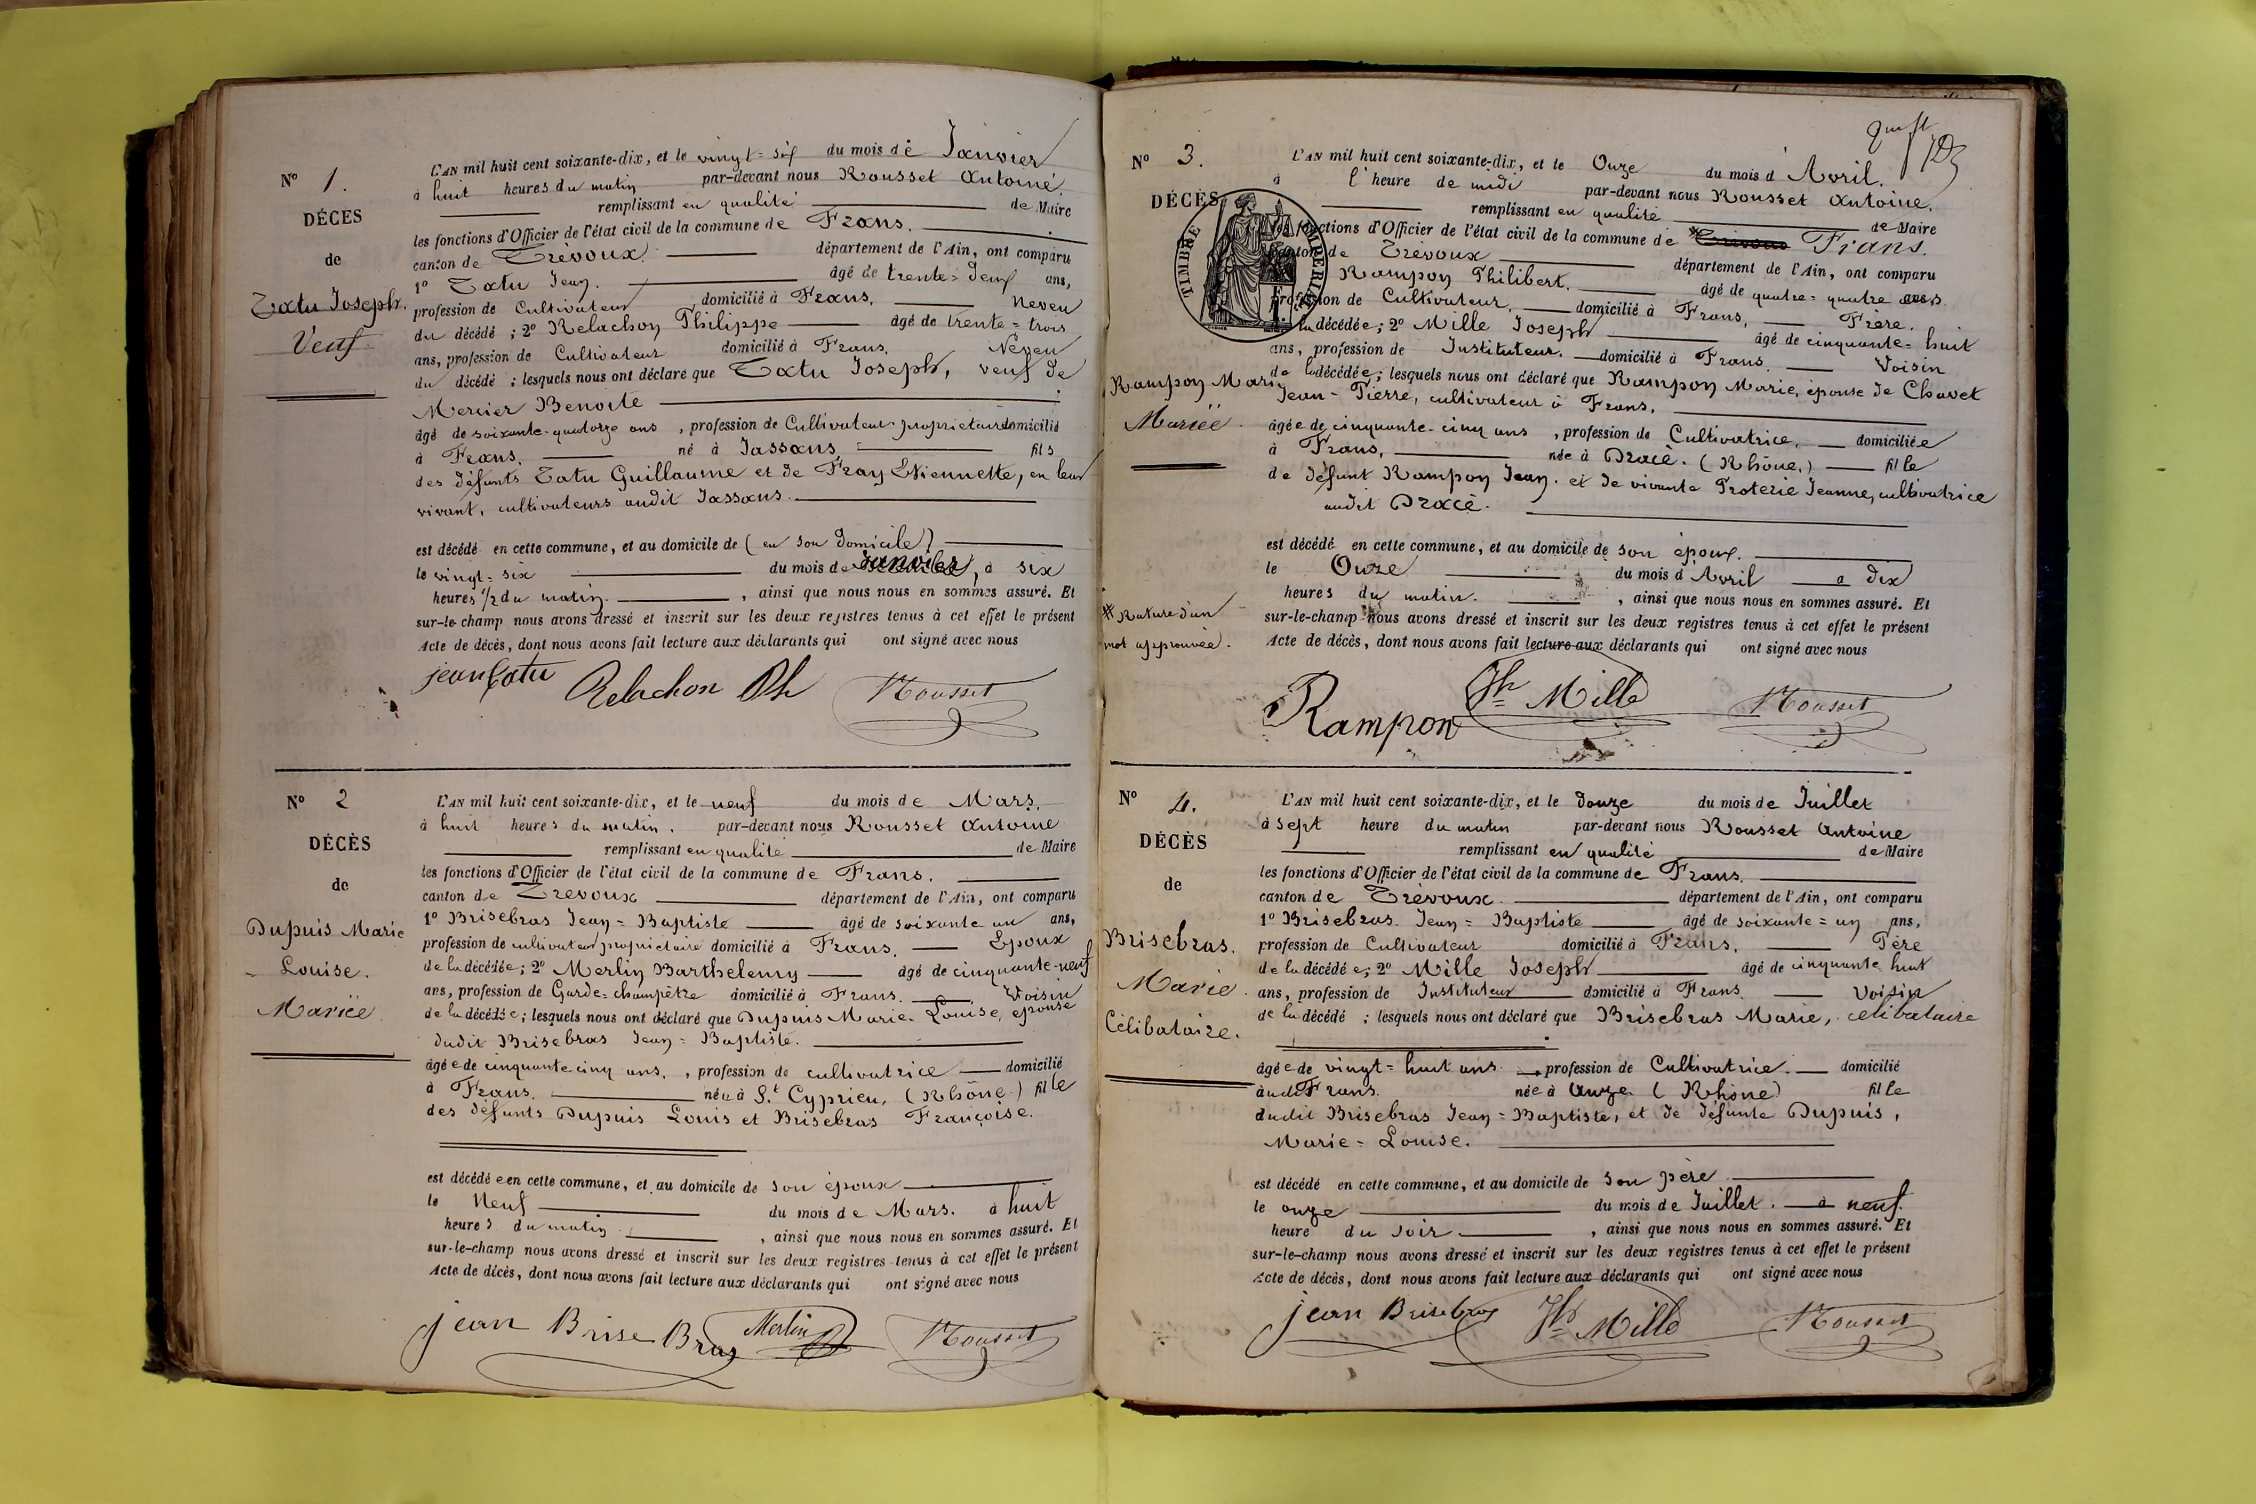 N° 1.
DÉCÈS
de
Tatu Joseph.
Veuf
L'AN mil huit cent soixante-dix, et le vingt-six du mois de Janvier
à huit heures du matin par-devant nous Rousset Antoine.
remplissant en qualité de Maire
les fonctions d'Officier de l'état civil de la commune de Frans.
canton de Trévoux. département de l'Ain, ont comparu
1° Tatu Jean. âgé de trente-deux ans,
profession de Cultivateur domicilié à Frans. neveu
du décédé ; 2° Relachon Philippe âgé de trente-trois
ans, profession de Cultivateur domicilié à Frans. Neveu
du décédé ; lesquels nous ont déclaré que Tatu Joseph, veuf de
Mercier Benoite
âgé de soixante-quatorze ans , profession de Cultivateur propriétaire domicilié
à Frans. né à Jassans, fils
des défunts Tatu Guillaume et de Fray Etiennette, en leur
vivant, cultivateurs audit Jassans.
est décédé en cette commune, et au domicile de (en son domicile)
le vingt-six du mois de Janvier, à six
heures 1/2 du matin. , ainsi que nous nous en sommes assuré. Et
sur-le-champ nous avons dressé et inscrit sur les deux registres tenus à cet effet le présent
Acte de décès, dont nous avons fait lecture aux déclarants qui ont signé avec nous
jean tatu Relachon Ph Rousset
N° 2
DÉCÈS
de
Dupuis Marie
Louise.
Mariée
L'AN mil huit cent soixante-dix, et le neuf du mois de Mars.
à huit heures du matin. par-devant nous Rousset Antoine
remplissant en qualité de Maire
les fonctions d'Officier de l'état civil de la commune de Frans.
canton de Trévoux département de l'Ain, ont comparu
1° Brisebras Jean-Baptiste âgé de soixante un ans,
profession de cultivateur propriétaire domicilié à Frans. Epoux
de la décédée ; 2° Merlin Barthelemy âgé de cinquante-neuf
ans, profession de Garde-champêtre domicilié à Frans. Voisin
de la décédée ; lesquels nous ont déclaré que Dupuis Marie-Louise, épouse
dudit Brisebras Jean-Baptiste.
âgée de cinquante cinq ans. , profession de cultivatrice domicilié
à Frans. née à St Cyprien, (Rhône) fille
des défunts Dupuis Louis et Brisebras Françoise.
est décédée en cette commune, et au domicile de son époux
le Neuf du mois de Mars. à huit
heures du matin. , ainsi que nous nous en sommes assuré. Et
sur-le-champ nous avons dressé et inscrit sur les deux registres tenus à cet effet le présent
Acte de décès, dont nous avons fait lecture aux déclarants qui ont signé avec nous
jean Brise Bras Merlin Rousset
N° 3.
DÉCÈS
TIMBRE IMPERIAL
Rampon Marie
Mariée.
L'AN mil huit cent soixante-dix, et le Onze du mois d'Avril.
à l'heure de midi par-devant nous Rousset Antoine.
remplissant en qualité de Maire
les fonctions d'Officier de l'état civil de la commune de Frans.
canton de Trévoux département de l'Ain, ont comparu
Rampon Philibert. âgé de quatre-quatre ans
profession de Cultivateur. domicilié à Frans. Frère.
la décédée ; 2° Mille Joseph âgé de cinquante-huit
ans, profession de Instituteur. domicilié à Frans. Voisin
de la décédée ; lesquels nous ont déclaré que Rampon Marie, épouse de Chavet
Jean-Pierre, cultivateur à Frans.
âgée de cinquante-cinq ans , profession de Cultivatrice. domiciliée
à Frans, née à Dracé. (Rhône.) fille
de défunt Rampon Jean. et de vivante Proterie Jeanne, cultivatrice
audit Dracé.
est décédé en cette commune, et au domicile de son époux.
le Onze du mois d'Avril à dix
heures du matin. , ainsi que nous nous en sommes assuré. Et
sur-le-champ nous avons dressé et inscrit sur les deux registres tenus à cet effet le présent
Acte de décès, dont nous avons fait lecture aux déclarants qui ont signé avec nous
Rature d'un
mot approuvée.
Rampon Jh Mille Rousset
N° 4.
DÉCÈS
de
Brisebras.
Marie.
Célibataire.
L'AN mil huit cent soixante-dix, et le douze du mois de Juillet
à sept heure du matin par-devant nous Rousset Antoine
remplissant en qualité de Maire
les fonctions d'Officier de l'état civil de la commune de Frans.
canton de Trévoux. département de l'Ain, ont comparu
1° Brisebras Jean-Baptiste âgé de soixante-un ans,
profession de Cultivateur domicilié à Frans. Père
de la décédée ; 2° Mille Joseph âgé de cinquante huit
ans, profession de Instituteur domicilié à Frans. Voisin
de la décédé ; lesquels nous ont déclaré que Brisebras Marie, célibataire
âgée de vingt-huit ans profession de Cultivatrice. domicilié
audit Frans. née à Anze (Rhône) fille
dudit Brisebras Jean-Baptiste, et de défunte Dupuis,
Marie-Louise.
est décédé en cette commune, et au domicile de son père
le onze du mois de Juillet. à neuf.
heure du soir. , ainsi que nous nous en sommes assuré. Et
sur-le-champ nous avons dressé et inscrit sur les deux registres tenus à cet effet le présent
Acte de décès, dont nous avons fait lecture aux déclarants qui ont signé avec nous
jean Brisebras Jh Mille Rousset